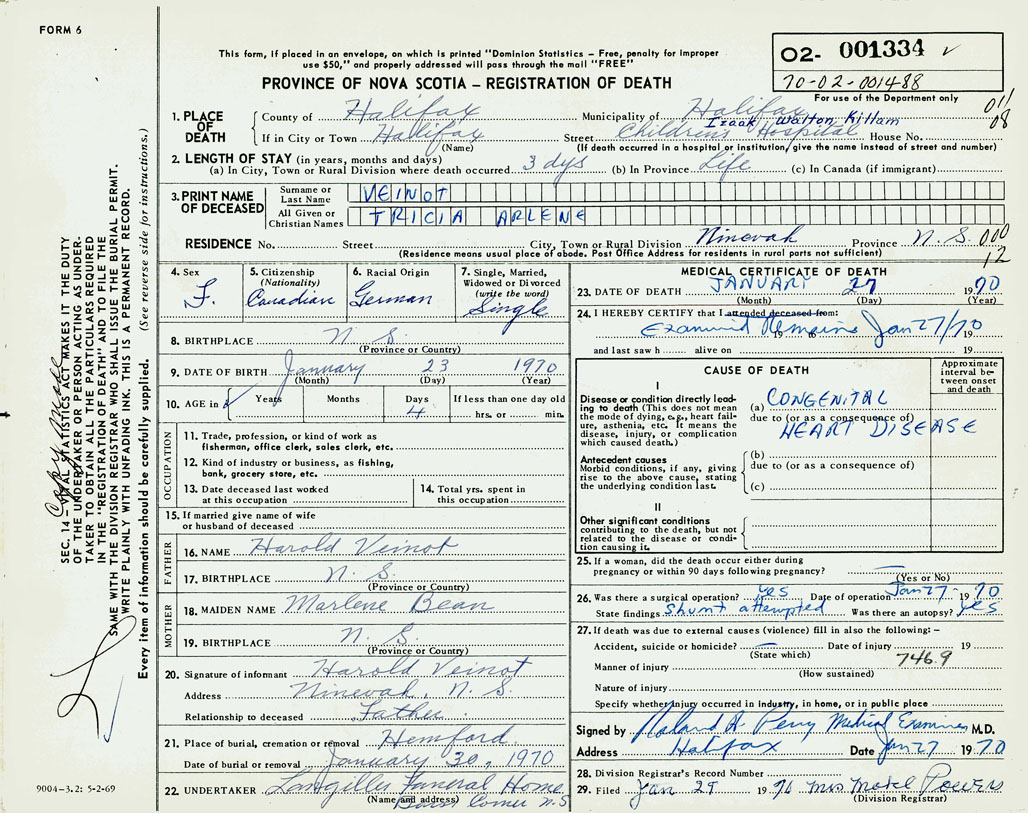 FORM 6
This form, if placed in an envelope, on which is printed "Dominion Statistics – Free, penalty for improper
use $50," and properly addressed will pass through the mail "FREE"
PROVINCE OF NOVA SCOTIA – REGISTRATION OF DEATH
O2- 001334 ✓
70-02-001488
For use of the Department only
011
08
1. PLACE OF DEATH
County of Halifax Municipality of Halifax
Izaak Walton Killam
If in City or Town Halifax Street Childrens Hospital House No.
(Name) (If death occurred in a hospital or institution, give the name instead of street and number)
2. LENGTH OF STAY (in years, months and days)
(a) In City, Town or Rural Division where death occurred 3 dys (b) In Province Life (c) In Canada (if immigrant)
3. PRINT NAME OF DECEASED
Surname or Last Name VEINOT
All Given or Christian Names TRICIA ARLENE
RESIDENCE No. Street City, Town or Rural Division Ninevah Province N.S. 000
12
(Residence means usual place of abode. Post Office Address for residents in rural parts not sufficient)
4. Sex F.
5. Citizenship (Nationality) Canadian
6. Racial Origin German
7. Single, Married, Widowed or Divorced (write the word) Single
8. BIRTHPLACE N. S.
(Province or Country)
9. DATE OF BIRTH January 23 1970
(Month) (Day) (Year)
10. AGE in Years Months Days 4 If less than one day old
hrs. or min.
OCCUPATION
11. Trade, profession, or kind of work as
fisherman, office clerk, sales clerk, etc.
12. Kind of industry or business, as fishing,
bank, grocery store, etc.
13. Date deceased last worked
at this occupation
14. Total yrs. spent in
this occupation
15. If married give name of wife
or husband of deceased
FATHER
16. NAME Harold Veinot
17. BIRTHPLACE N. S.
(Province or Country)
MOTHER
18. MAIDEN NAME Marlene Bean
19. BIRTHPLACE N. S.
(Province or Country)
20. Signature of informant Harold Veinot
Address Ninevah, N. S.
Relationship to deceased Father
21. Place of burial, cremation or removal Hemford
Date of burial or removal January 30, 1970
22. UNDERTAKER Funeral Home
(Name and address) Corner N.S
MEDICAL CERTIFICATE OF DEATH
23. DATE OF DEATH JANUARY 27 1970
(Month) (Day) (Year)
24. I HEREBY CERTIFY that I attended deceased from:
Examined Remains Jan 27/70
19 to
and last saw h alive on 19
CAUSE OF DEATH
Approximate interval between onset and death
I
Disease or condition directly lead-
ing to death (This does not
mean the mode of dying, e.g., heart fail-
ure, asthenia, etc. It means the
disease, injury, or complication
which caused death.)
(a) CONGENITAL
due to (or as a consequence of)
HEART DISEASE
Antecedent causes
Morbid conditions, if any, giving
rise to the above cause, stating
the underlying condition last.
(b)
due to (or as a consequence of)
(c)
II
Other significant conditions
contributing to the death, but not
related to the disease or condi-
tion causing it.
25. If a woman, did the death occur either during
pregnancy or within 90 days following pregnancy? —
(Yes or No)
26. Was there a surgical operation? yes Date of operation Jan 27 - 1970
State findings Shunt attempted Was there an autopsy? yes
27. If death was due to external causes (violence) fill in also the following: –
Accident, suicide or homicide? — Date of injury 19
(State which) 746.9
Manner of injury
(How sustained)
Nature of injury
Specify whether injury occurred in industry, in home, or in public place
Signed by Roland H Perry Medical Examiner M.D.
Address Halifax Date Jan 27 1970
28. Division Registrar's Record Number
29. Filed Jan 29 1970 Mrs. Powers
(Division Registrar)
SEC. 14 – VITAL STATISTICS ACT MAKES IT THE DUTY
OF THE UNDERTAKER OR PERSON ACTING AS UNDER-
TAKER TO OBTAIN ALL THE PARTICULARS REQUIRED
IN THE "REGISTRATION OF DEATH" AND TO FILE THE
SAME WITH THE DIVISION REGISTRAR WHO SHALL ISSUE THE BURIAL PERMIT.
WRITE PLAINLY WITH UNFADING INK. THIS IS A PERMANENT RECORD.
Every item of information should be carefully supplied. (See reverse side for instructions.)
9004-3.2: 5-2-69